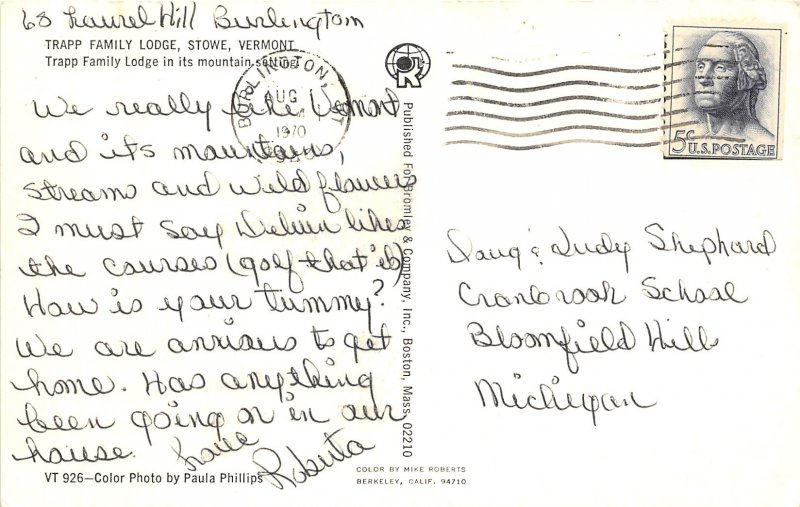 68 Laurel Hill Burlington
TRAPP FAMILY LODGE, STOWE, VERMONT
Trapp Family Lodge in its mountain setting.
We really like Vermont
and its mountains,
streams and wild flowers
I must say likes
the courses (golf that is)
How is your tummy?
We are anxious to get
home. Has anything
been going on in our
house. Love
Roberta
VT 926—Color Photo by Paula Phillips
BURLINGTON, VT
AUG
1970
Published For Bromley & Company, Inc., Boston, Mass. 02210
COLOR BY MIKE ROBERTS
BERKELEY, CALIF. 94710
5c U.S. POSTAGE
Doug & Judy Shephard
Cranbrook School
Bloomfield Hills
Michigan